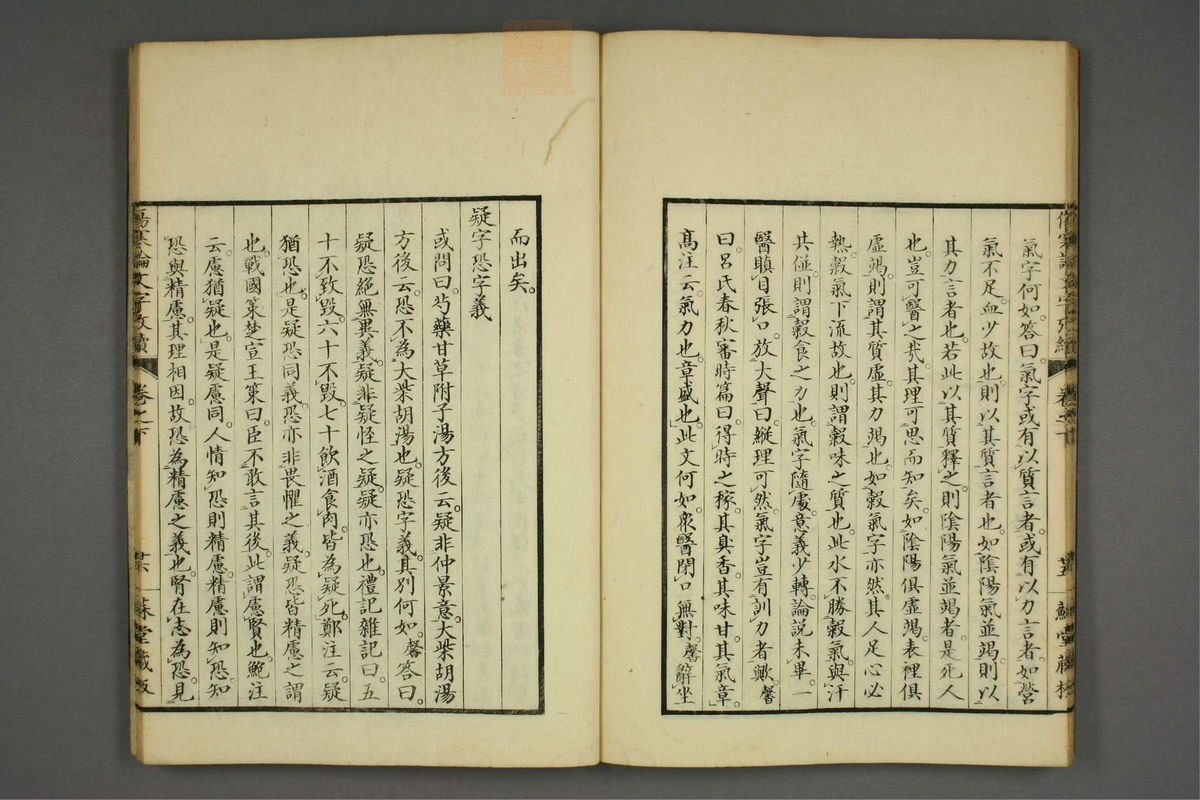 氣字何如答曰氣字或有以質言者或有以力言者如營
氣不足血少故也則以其質言者也如陰陽氣並竭則以
其力言者也若此以其質釋之則陰陽氣並竭者是死人
也豈可醫之哉其理可思而知矣如陰陽俱虛竭表裡俱
虛竭則謂其質虛其力竭也如穀氣字亦然其人足心必
熱穀氣下流故也則謂穀味之質也此水不勝穀氣與汗
共併則謂穀食之力也氣字隨處意義少轉論說未畢一
醫瞋目張口放大聲曰縱理可然氣字豈有訓力者歟馨
曰呂氏春秋審時篇曰得時之稼其臭香其味甘其氣章
高注云氣力也章盛也此文何如衆醫閉口無對馨辭坐
而出矣
疑字恐字義
或問曰芍藥甘草附子湯方後云疑非仲景意大柴胡湯
方後云恐不為大柴胡湯也疑恐字義其別何如馨答曰
疑恐絕無異義疑非疑怪之疑疑亦恐也禮記雜記曰五
十不致毀六十不毀七十飲酒食肉皆為疑死鄭注云疑
猶恐也是疑恐同義恐亦非畏懼之義疑恐皆精慮之謂
也戰國策楚宣王策曰臣不敢言其後此謂慮賢也鮑注
云慮猶疑也是疑慮同人情知恐則精慮精慮則知恐知
恐與精慮其理相因故恐為精慮之義也腎在志為恐見
傷寒論文字攷續
卷之下
蘇堂藏板